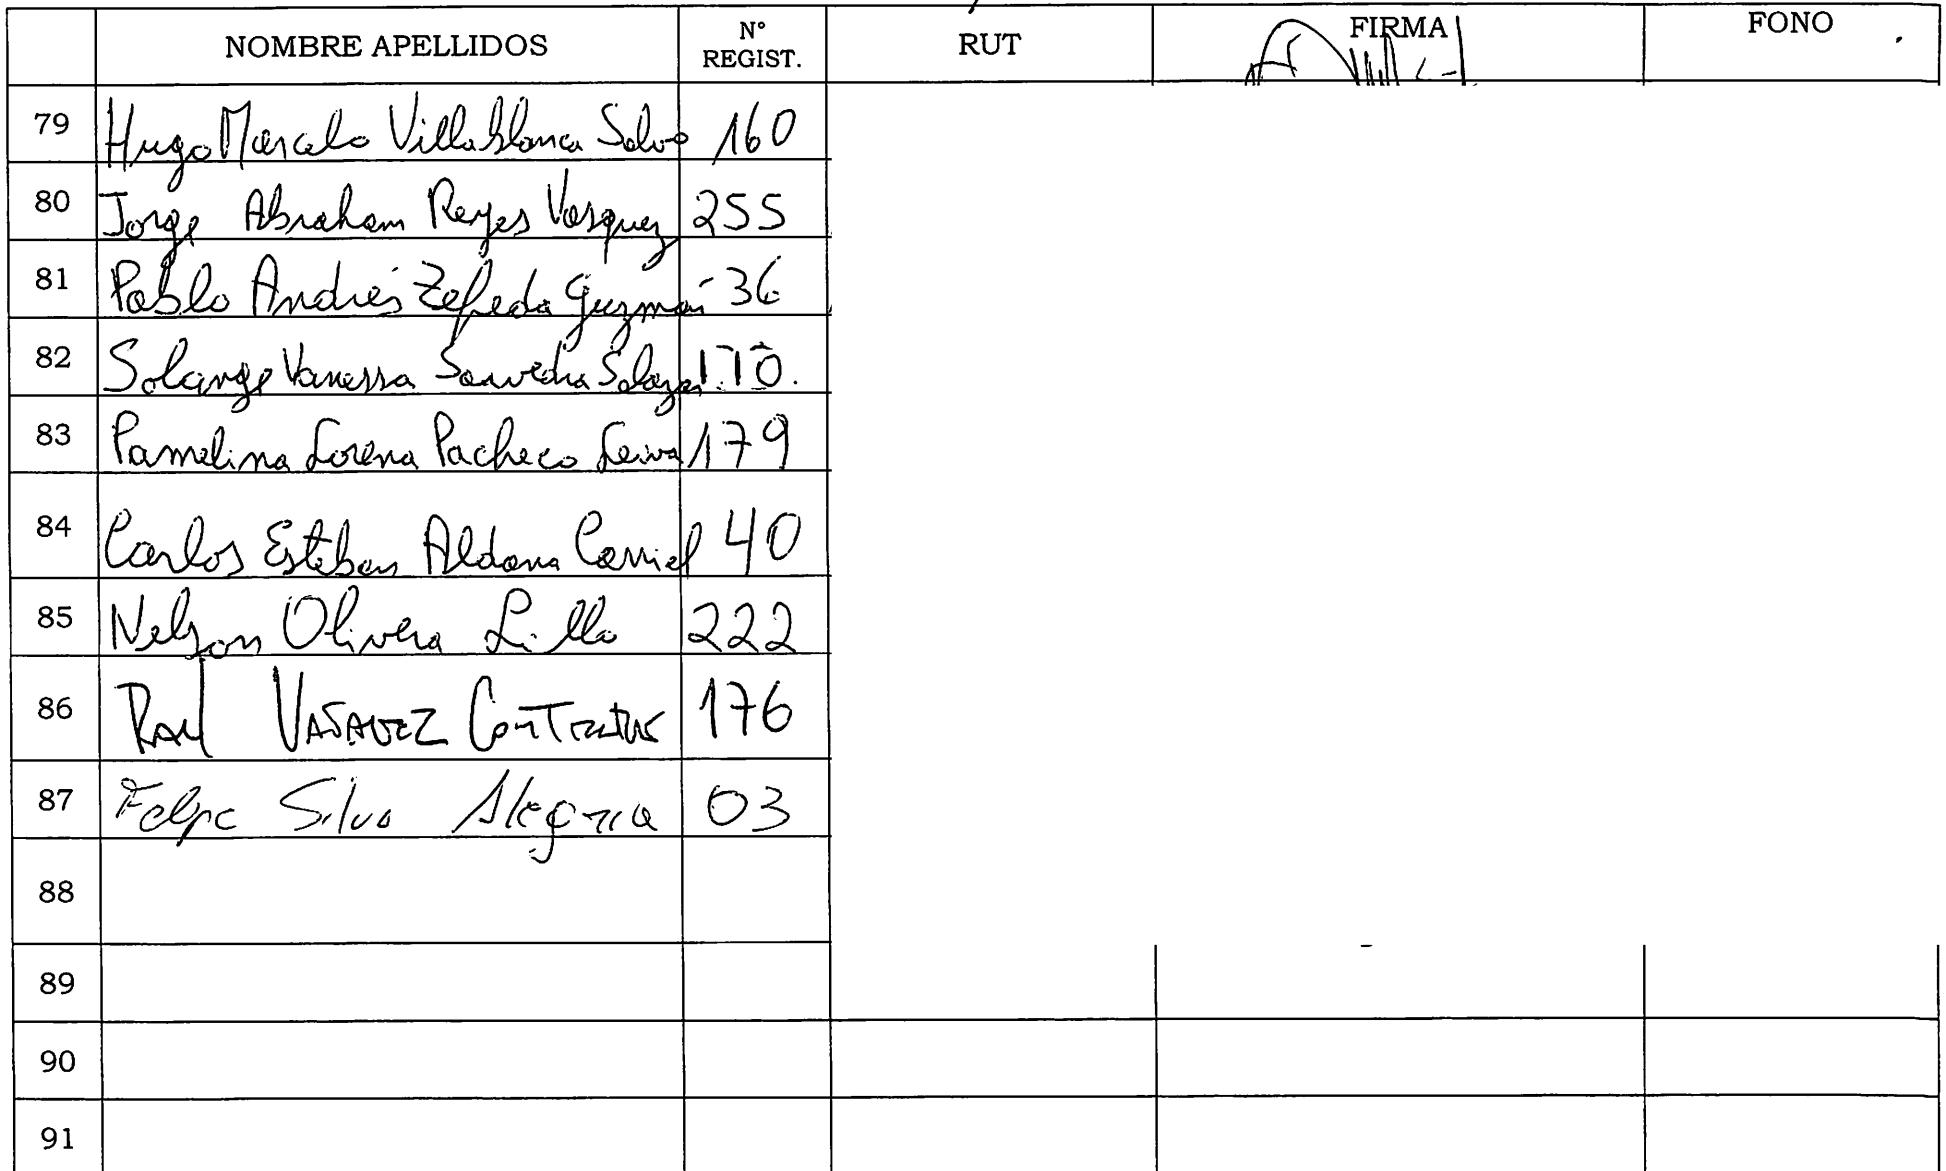 NOMBRE APELLIDOS N° REGIST. RUT FIRMA FONO
79 Hugo Marcelo Villablanca Salvo 160
80 Jorge Abraham Reyes Vasquez 255
81 Pablo Andrés Zepeda Guzmán 36
82 Solange Vanessa Saavedra Salazar 170.
83 Pamelina Lorena Pacheco Leiva 179
84 Carlos Esteban Aldana Carriel 40
85 Nelson Olivera Lillo 222
86 Raul VASQUEZ ContreRAS 176
87 Felipe Silva Alegria 03
88
89
90
91